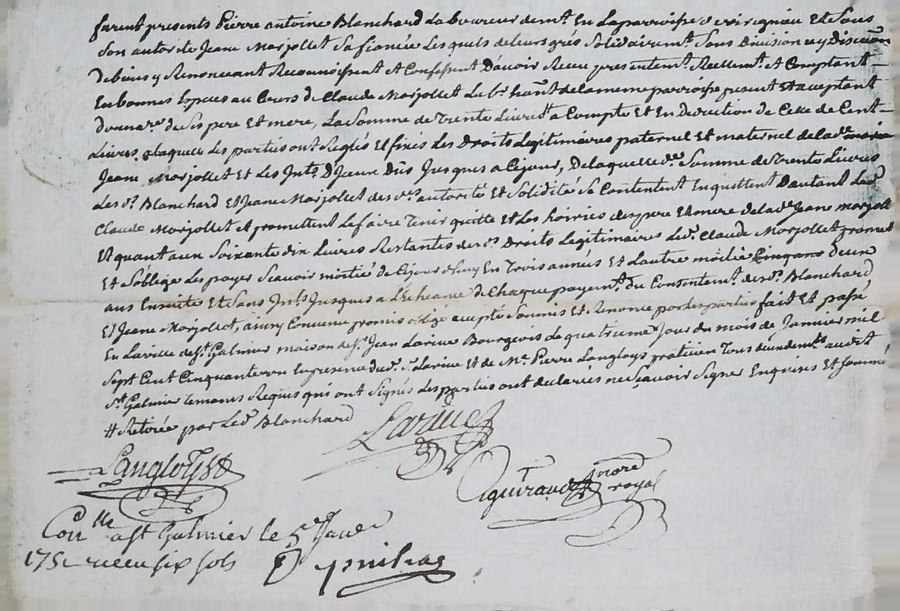 furent presents Pierre antoine Blanchard Laboureur demt. En Laparroisse Et Sous
Son autorité Jeane Marjollet Safiancée Lesquels deleurs grés Solidairemt. Sous Division ny Discution
Debiens y Renoncant Reconoissent Et Confessent Davoir Receu presentemt. Reellemt. Et Comptant
Enbonnes Especes au Cours de Claude Marjollet Le bt. habitant delamemeparroisse present Et acceptant
donnare. de Ses pere Et mere, La Somme de Trente Livres a Compte Et En Deduction de Celle de Cent
Livres, alaquelle Les parties ont Reglés Et fixés Les Droits Legitimaires paternel Et maternel de lade.
Jeane Marjollet Et Les Intts. D'yceux Dûs Jusques a Cejour, De laquelle de. Somme de Trente Livres
Les ds. Blanchard Et Jeane Marjollet des ds. autorité Et Solidité Se Contentent En quittent Dautant Led.
Claude Marjollet Et promettent Le faire Tenir quitte Et Les hoiries des pere Et mere de lade. Jeane Marjollet
Et quant aux Soixante dix Livres Restantes de ds. Droits Legitimaires Led. Claude Marjollet promet
Et Soblige Les payer Scavoir moitié de Cejour En Trois années Et Lautre moitié Cinq
ans Ensuite Et Sans Intts. Jusques a L'Echeance de Chaque payemt. du Consentemt. desd. Blanchard
Et Jeane Marjollet, ainsy Convenu promis obligé accepté Soumis Et Renoncé par les parties fait Et passé,
En Laville de St. Galmier maison de Sr. Jean Larive Bourgeois Le quatrieme Jour du mois de Janvier mil
Sept Cent Cinquante un En presence dud. Sr. Larive Et de Me. Pierre Langloys praticien Tous deux demts. audit
St. Galmier temoins Requis qui ont Signés Les parties ont declarées ne Scavoir Signer Enquises Et Sommé
# Retirée par Led. Blanchard
Larive
Langloys
nore.
royal
Conlle. a St Galmier le 5e Janr.
175 receu six sols